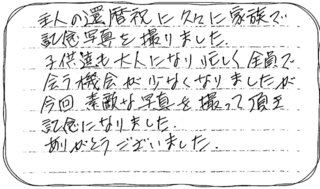 主人の還暦祝に久々に家族で
記念写真を撮りました。
子供達も大人になり忙しく全員で
会う機会が少なくなりましたが
今回素敵な写真を撮って頂き
記念になりました。
ありがとうございました。